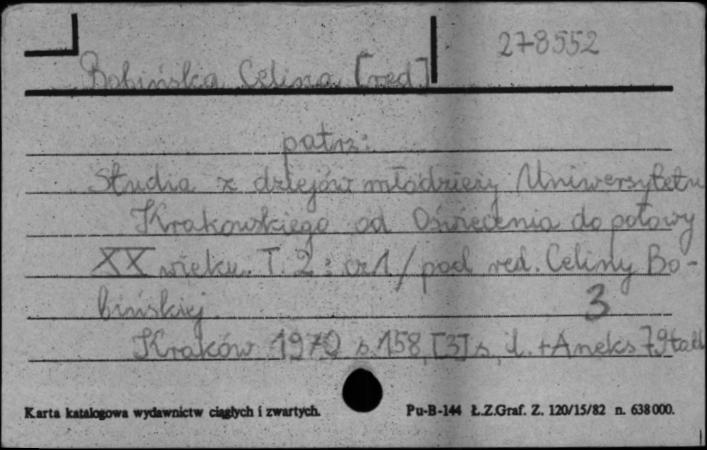 278552
Bobińska Celina [red]
patrz:
Studia z dziejów młodzieży Uniwersytetu
Krakowskiego od Oświecenia do połowy
XX wieku. T. 2: cz1/pod red. Celiny Bo-
bińskiej.
3
Kraków 1970 s.158,[3]s, il. + Aneks 79tabl
Karta katalogowa wydawnictw ciągłych i zwartych. Pu-B-144 Ł.Z.Graf. Z. 120/15/82 n. 638000.